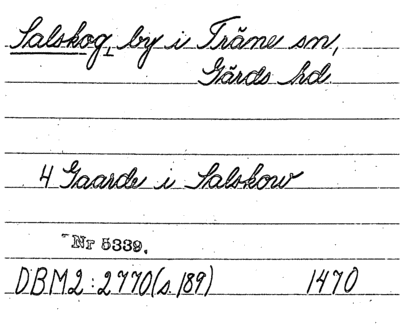 Salskog, by i Träne sn,
Gärds hd
4 Gaarde i Salskow
Nr 5339.
DBM2:2770(s.189) 1470